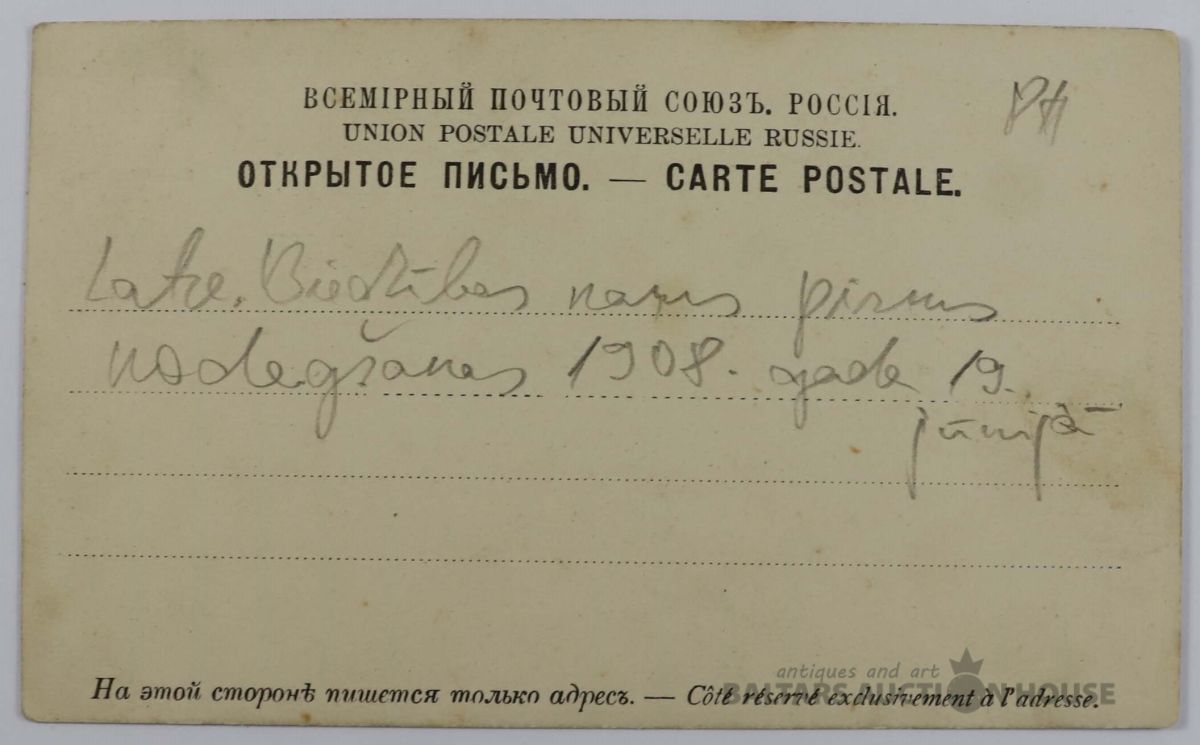 ВСЕМІРНЫЙ ПОЧТОВЫЙ СОЮЗЪ. РОССІЯ.
UNION POSTALE UNIVERSELLE RUSSIE.
ОТКРЫТОЕ ПИСЬМО. — CARTE POSTALE.
Latv. Biedrības nams pirms
nodegšanas 1908. gada 19.
jūnijā
antiques and art
BALTARS AUCTION HOUSE
На этой сторонѣ пишется только адресъ. — Côté réservé exclusivement à l'adresse.